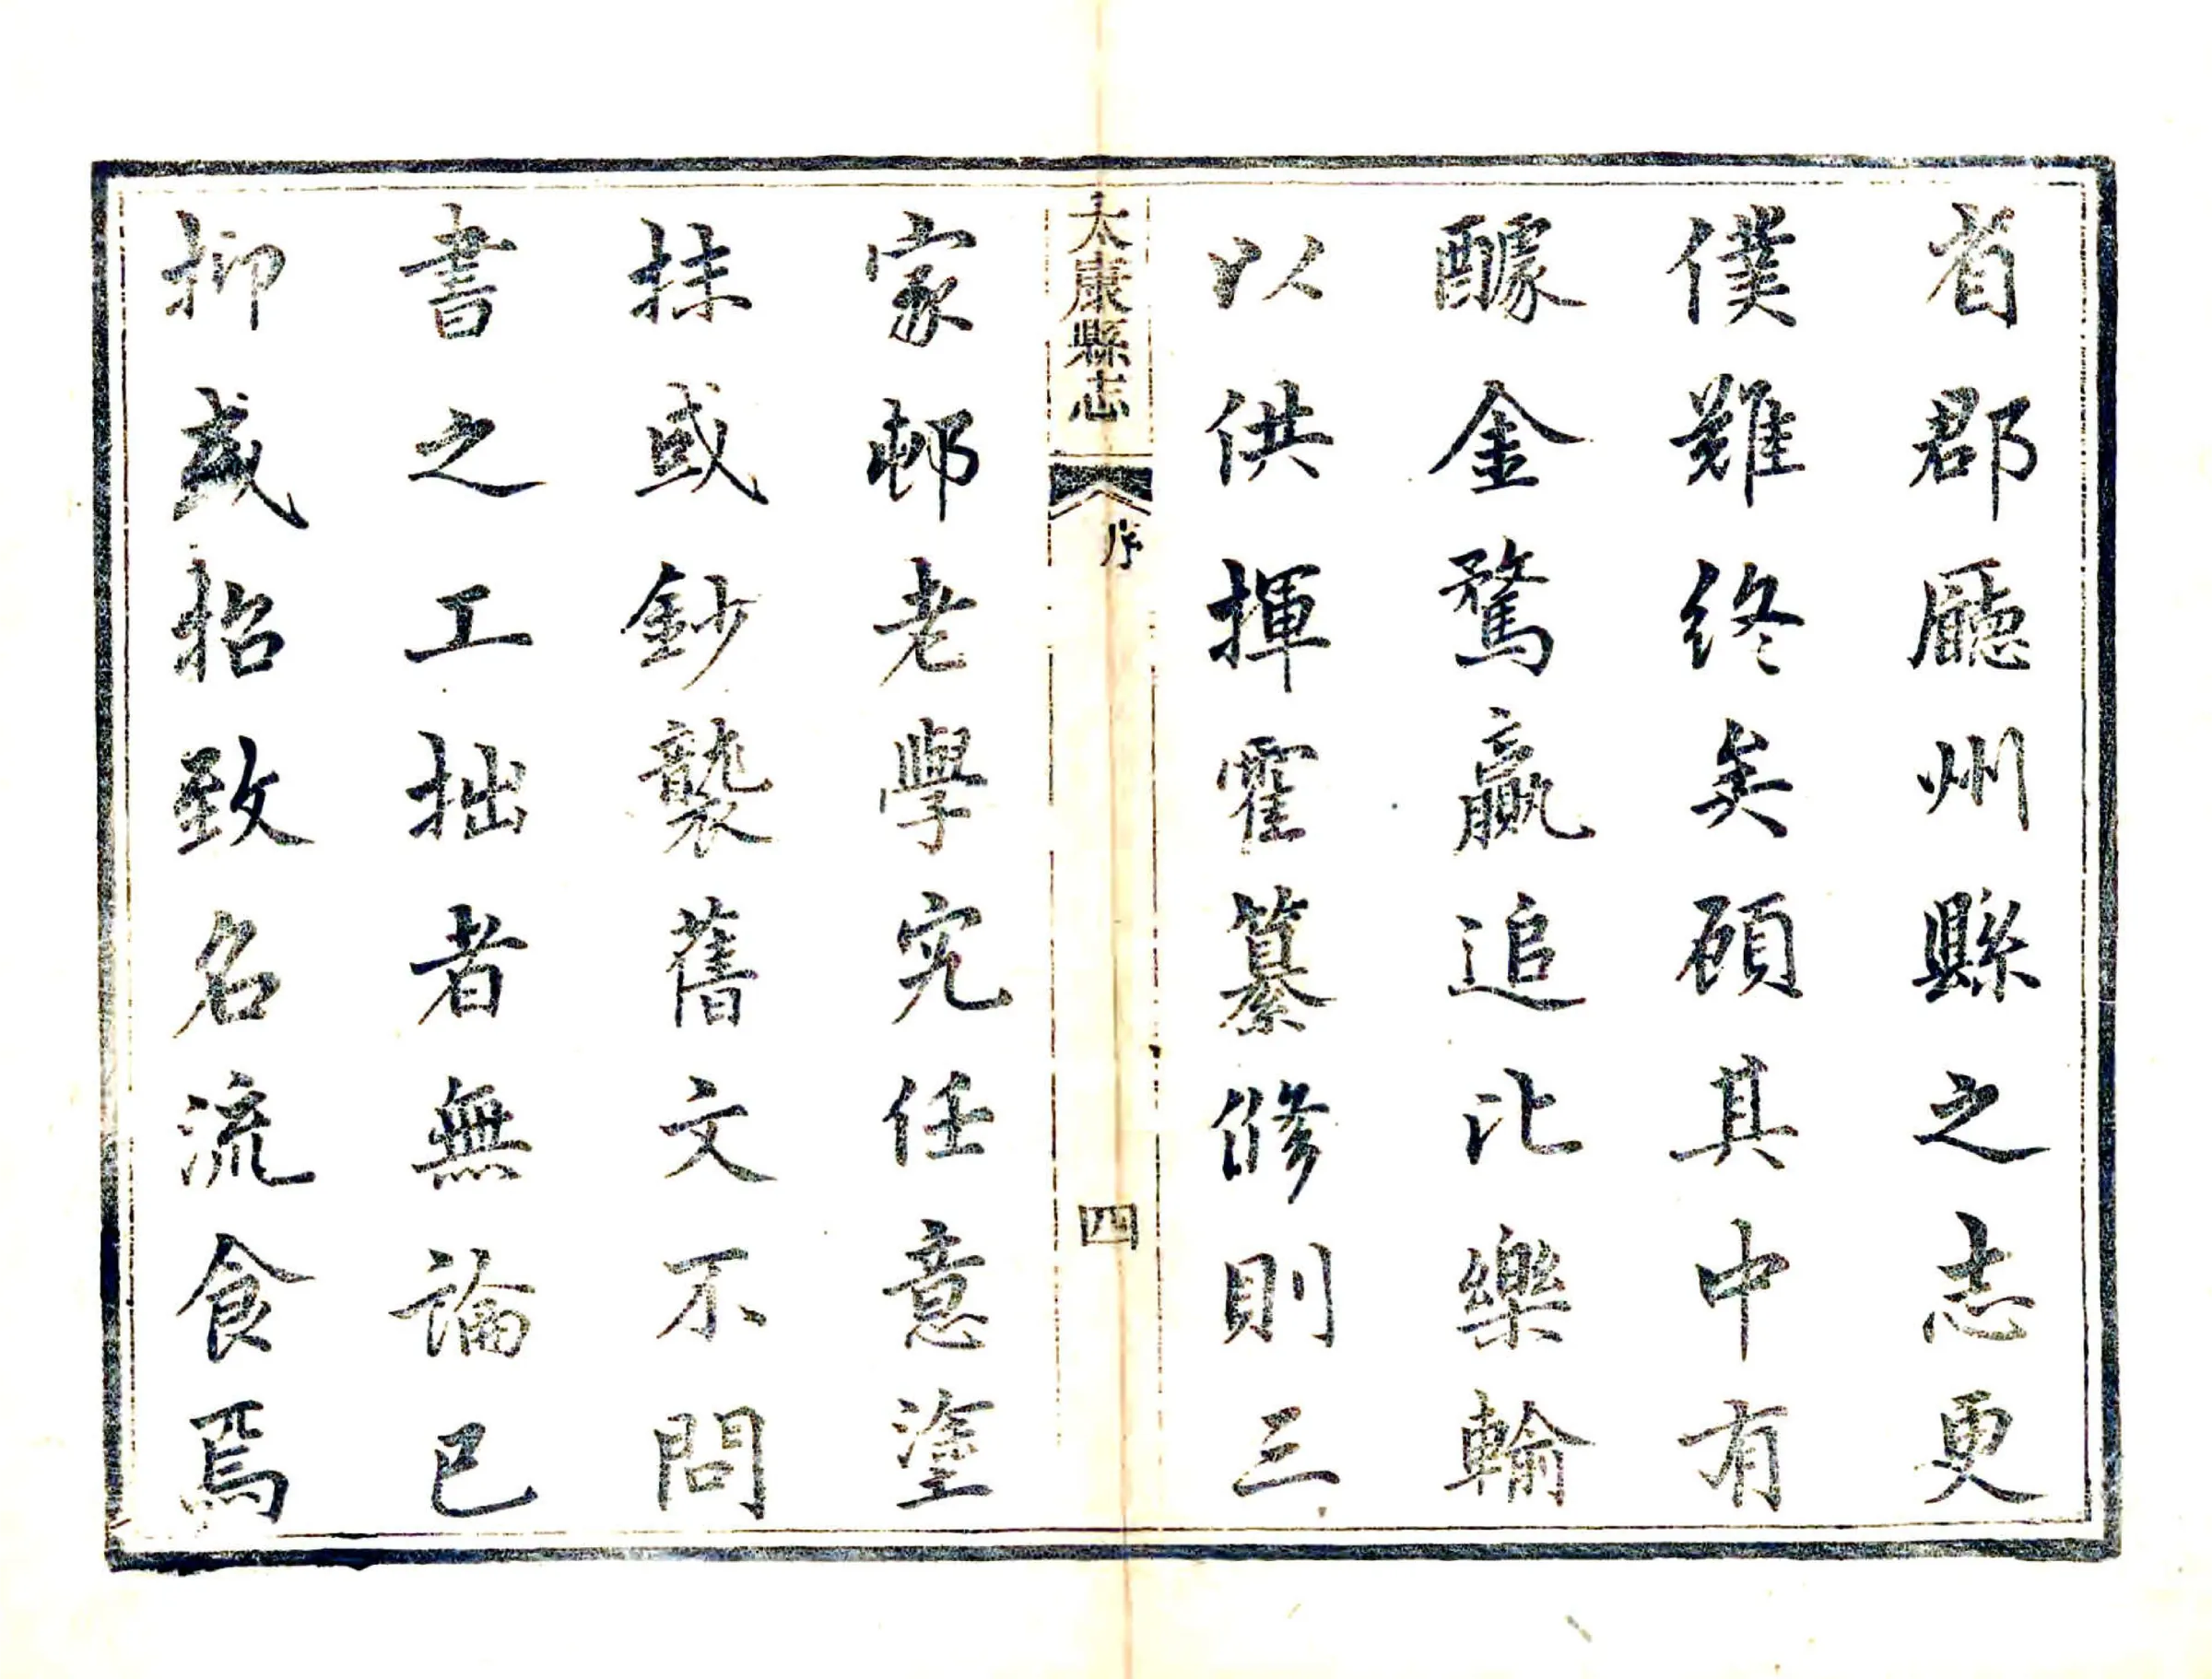 省郡廳州縣之志更
僕難終矣顧其中有
醵金騖贏追比樂輸
以供揮霍纂修則三
太康縣志
序
四
家邨老學究任意塗
抹或鈔襲舊文不問
書之工拙者無論已
抑或招致名流食焉